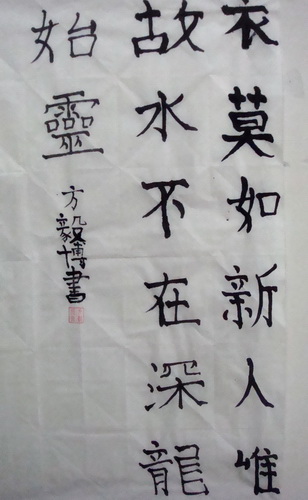 衣莫如新人唯
故水不在深龍
始靈
方毅博書